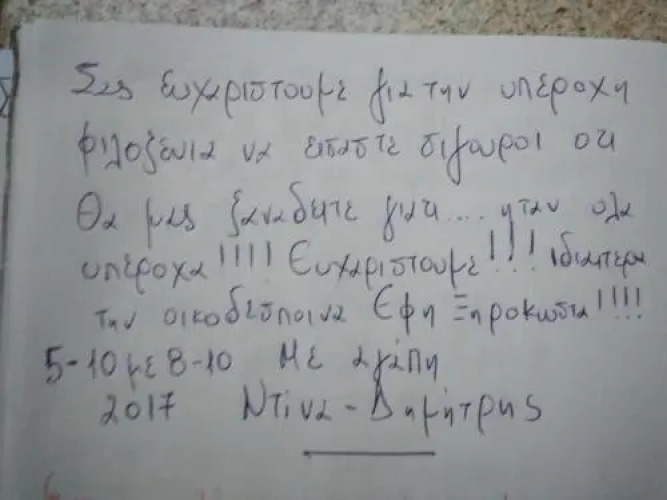 Σας ευχαριστουμε για την υπέροχη
φιλοξενια να εισαστε σιγουροι οτι
Θα μας ξαναδειτε γιατι.... ηταν ολα
υπέροχα!!!! Ευχαριστουμε!!! ιδιαιτερα
την οικοδέσποινα Εφη Ξηροκωστα!!!!
5-10 με 8-10 Με αγάπη
2017 Ντίνα - Δημήτρης